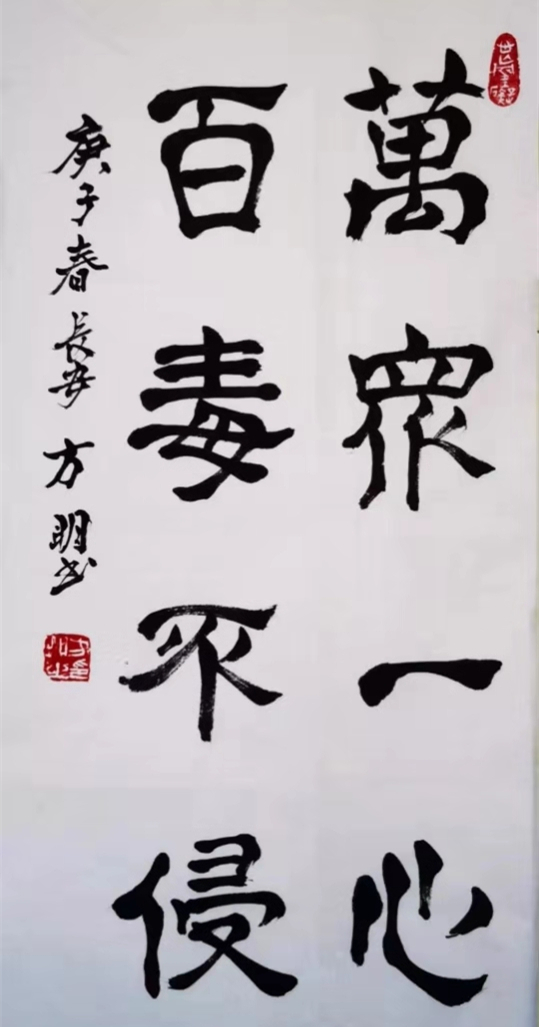 萬眾一心
百毒不侵
庚子春長安方明书